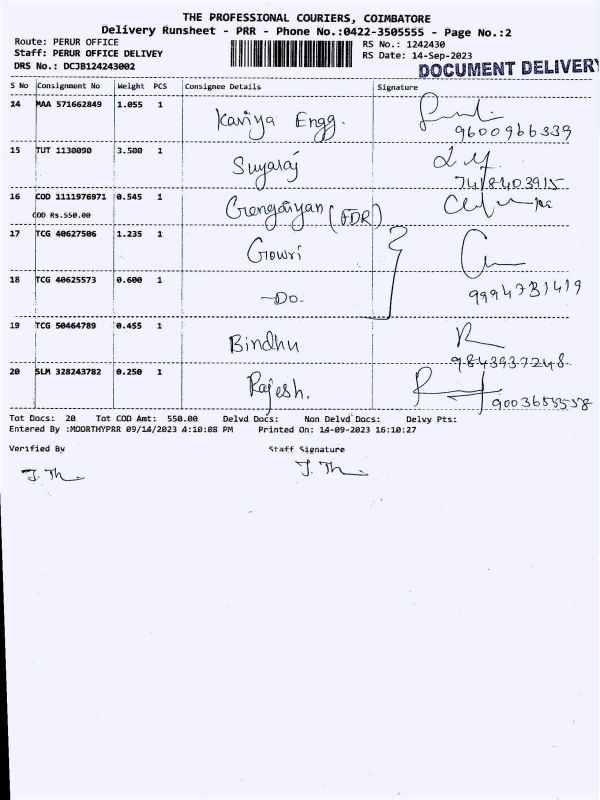 THE PROFESSIONAL COURIERS, COIMBATORE
Delivery Runsheet - PRR - Phone No.:0422-3505555 - Page No.:2
Route: PERUR OFFICE
RS No.: 1242430
Staff: PERUR OFFICE DELIVEY
RS Date: 14-Sep-2023
DRS No.: DCJB124243002
DOCUMENT DELIVERY
S No Consignment No Weight PCS Consignee Details Signature
14 MAA 571662849 1.055 1 Kaviya Engg.
9600966339
15 TUT 1130090 3.500 1 Suyaraj
7418403915
16 COD 1111976971 0.545 1 Gengaiyan (FDR)
COD Rs.550.00
17 TCG 40627506 1.235 1 Gowri
18 TCG 40625573 0.600 1 -Do- 9994731419
19 TCG 50464789 0.455 1 Bindhu
9843937248
20 SLM 328243782 0.250 1 Rajesh.
9003655558
Tot Docs: 20 Tot COD Amt: 550.00 Delvd Docs: Non Delvd Docs: Delvy Pts:
Entered By :MOORTHYPRR 09/14/2023 4:10:08 PM Printed On: 14-09-2023 16:10:27
Verified By Staff Signature
J. Th J. Th